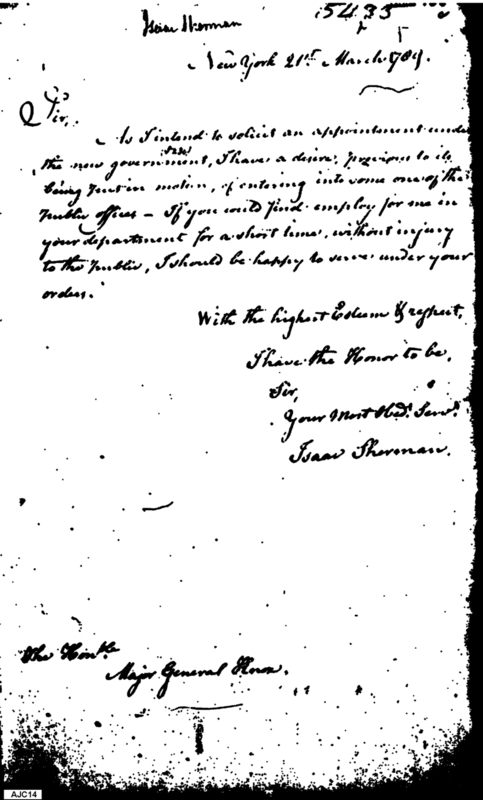 Isaac Sherman
5435
New York 21st March 1789.
Sir,
As I intend to solicit an appointment under
the new government, I have a desire, previous to its
being put in motion, of entering into some one of the
public offices – If you could find employ for me in
your department for a short time, without injury
to the public, I should be happy to serve under your
orders.
With the highest Esteem & respect,
I have the Honor to be,
Sir,
Your Most Obed. Serv.
Isaac Sherman.
The Honble
Major General Knox.
AJC14